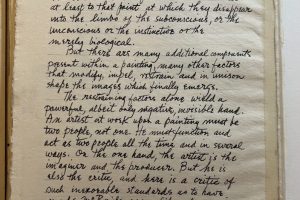 at least to that point at which they disappear
into the limbo of the subconscious, or the
unconscious or the instinctive or the
merely biological.
But there are many additional components
present within a painting, many other factors
that modify, impel, restrain and in unison
shape the images which finally emerge.
The restraining factors alone wield a
powerful, albeit only negative, invisible hand.
An artist at work upon a painting must be
two people, not one. He must function and
act as two people all the time and in several
ways. On the one hand, the artist is the
imaginer and the producer. But he is
also the critic, and here is a critic of
such inexorable standards as to have